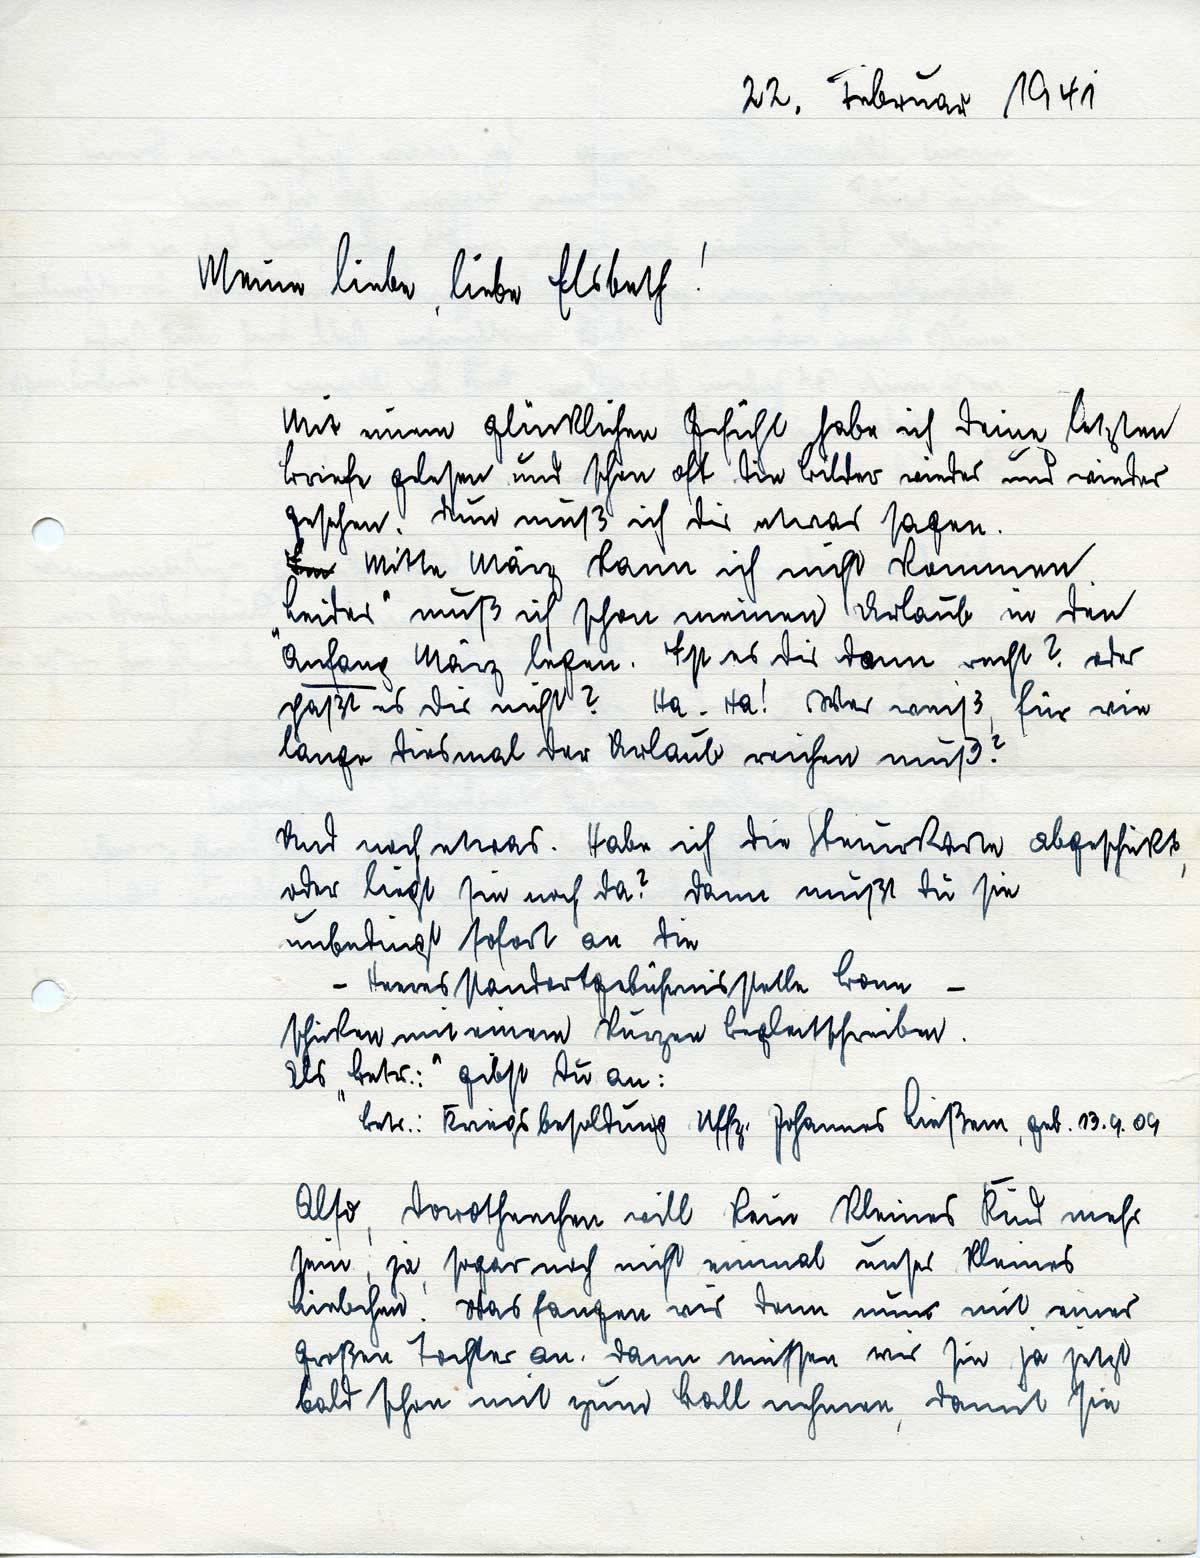 22. Februar 1941
Meine liebe, liebe Elsbeth!
Mit einem glücklichen Gesicht habe ich Deine letzten
Briefe gelesen und schon oft die Bilder wieder und wieder
gesehen. Nun muß ich Dir etwas sagen.
Mitte März kann ich nicht kommen.
"Leider" muß ich schon meinen Urlaub in den
Anfang März legen. Ist es Dir dann recht? oder
paßt es Dir nicht? Ha-Ha! Wer weiß, für wie
lange diesmal der Urlaub reichen muß?
Und noch etwas. Habe ich die Steuerkarte abgeschickt,
oder liegt sie noch da? Dann mußt Du sie
unbedingt sofort an die
- Heeresstandortgebührnisstelle Bonn -
schicken mit einem kurzen Begleitschreiben.
Als "Betr.:" gibst Du an:
Betr.: Kriegsbesoldung Uffz. Johannes Ließem, geb. 13.9.09
Also, Dorotheechen will kein kleines Kind mehr
sein, ja, sogar noch nicht einmal unser kleines
Liebchen! Was fangen wir denn nur mit einer
großen Tochter an. Dann müssen wir sie ja jetzt
bald schon mit zum Ball nehmen, damit sie